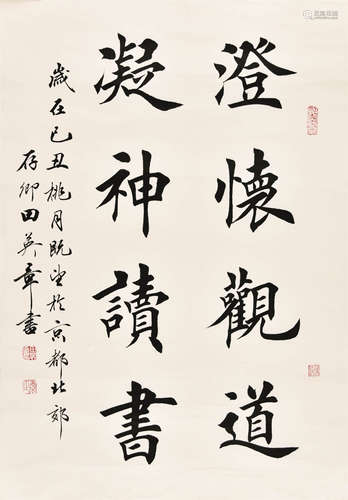 澄懷觀道
凝神讀書
歲在己丑桃月既望於京都北郊
存卿田英章書